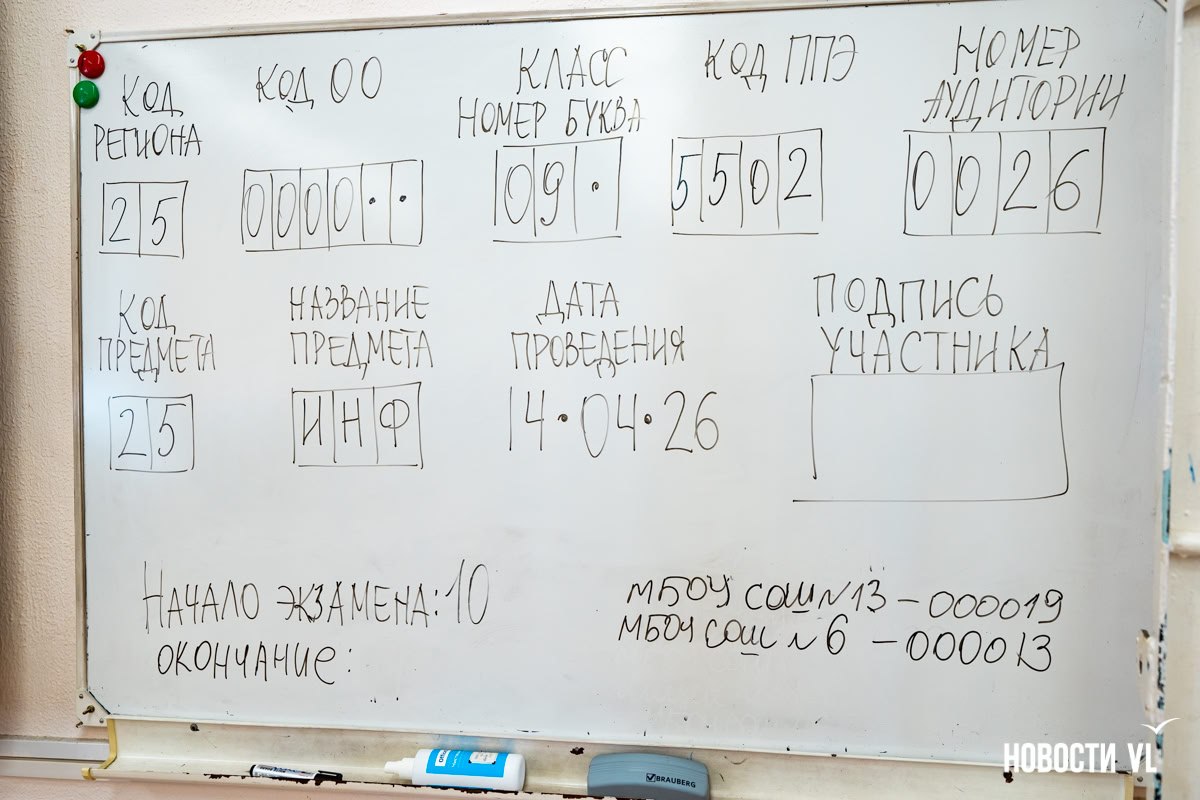 КОД РЕГИОНА
25
КОД ОО
0000··
КЛАСС
НОМЕР БУКВА
09·
КОД ППЭ
5502
НОМЕР
АУДИТОРИИ
0026
КОД
ПРЕДМЕТА
25
НАЗВАНИЕ
ПРЕДМЕТА
ИНФ
ДАТА
ПРОВЕДЕНИЯ
14·04·26
ПОДПИСЬ
УЧАСТНИКА
НАЧАЛО ЭКЗАМЕНА: 10
ОКОНЧАНИЕ:
МБОУ СОШ N13 – 000019
МБОУ СОШ N 6 – 000013
BRAUBERG
НОВОСТИ VL